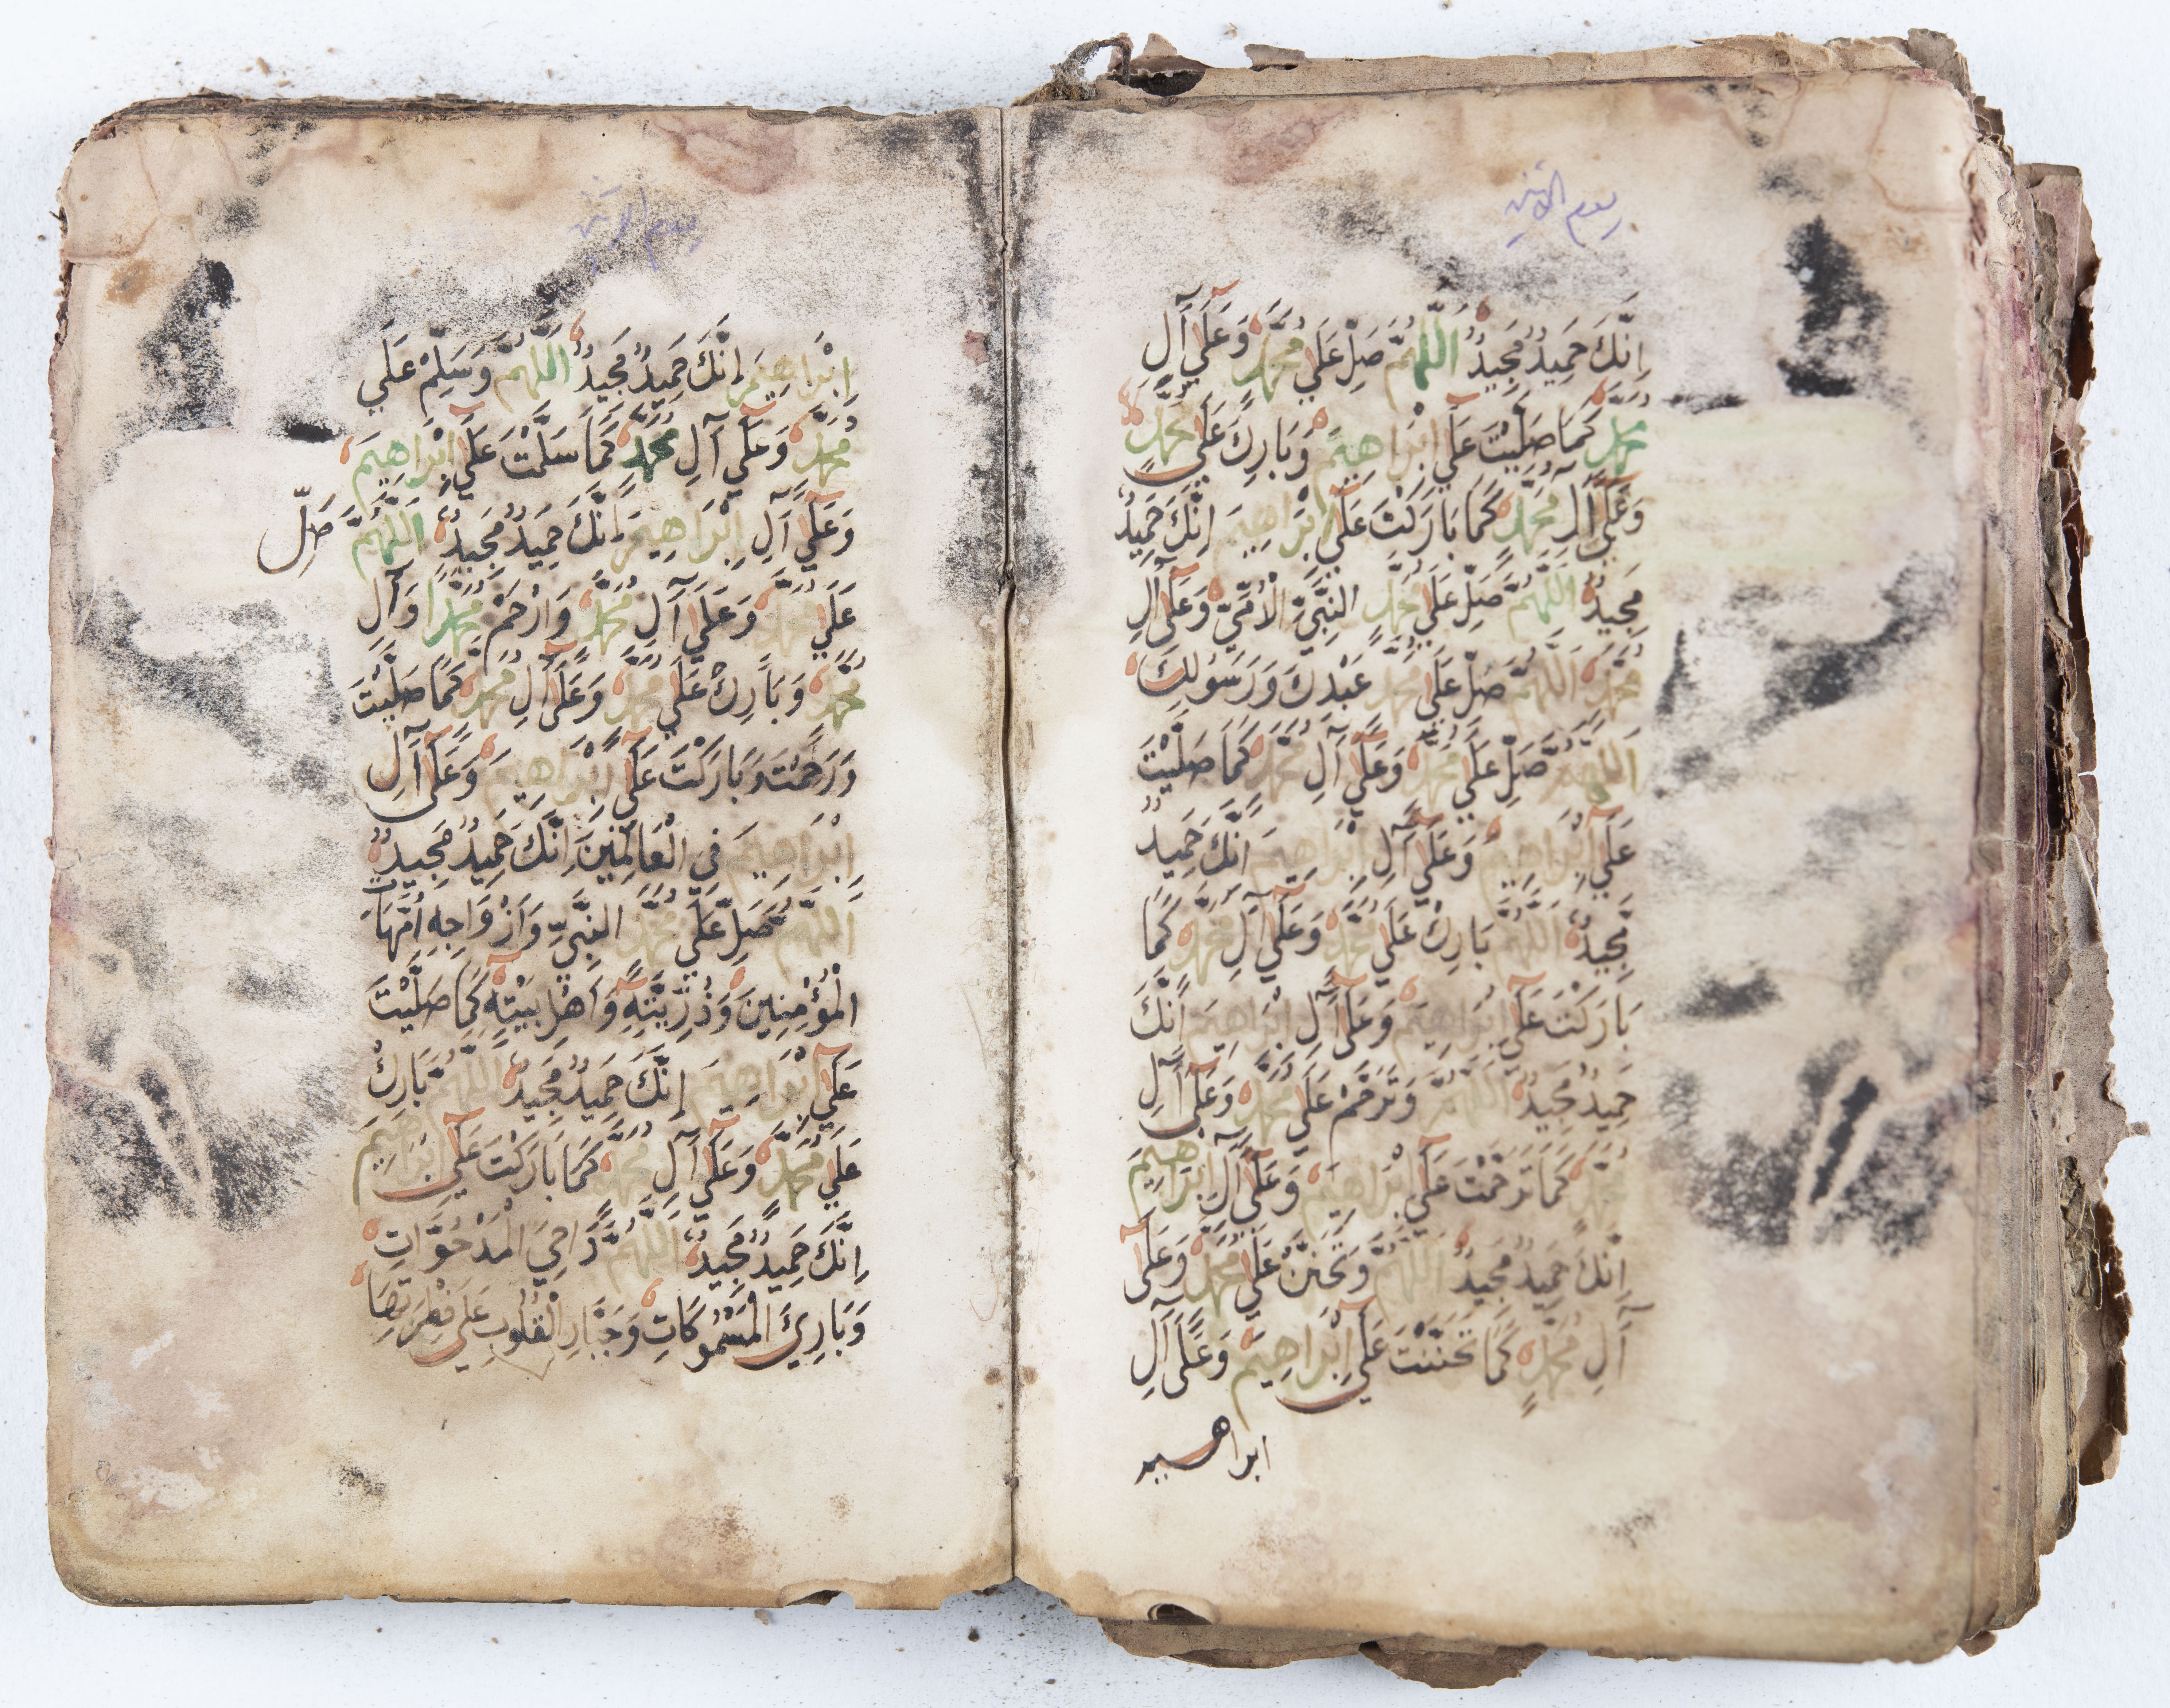 يوم الاثنين
اِنَّكَ حَمِيدٌ مَجِيدٌ اَللّٰهُمَّ صَلِّ عَلَى مُحَمَّدٍ وَعَلَى آلِ
مُحَمَّدٍ كَمَا صَلَّيْتَ عَلَى اِبْرَاهِيمَ وَبَارِكْ عَلَى مُحَمَّدٍ
وَعَلَى آلِ مُحَمَّدٍ كَمَا بَارَكْتَ عَلَى اِبْرَاهِيمَ اِنَّكَ حَمِيدٌ
مَجِيدٌ اَللّٰهُمَّ صَلِّ عَلَى مُحَمَّدٍ النَّبِيِّ الْاُمِّيِّ وَعَلَى آلِ
مُحَمَّدٍ اَللّٰهُمَّ صَلِّ عَلَى مُحَمَّدٍ عَبْدِكَ وَرَسُولِكَ
اَللّٰهُمَّ صَلِّ عَلَى مُحَمَّدٍ وَعَلَى آلِ مُحَمَّدٍ كَمَا صَلَّيْتَ
عَلَى اِبْرَاهِيمَ وَعَلَى آلِ اِبْرَاهِيمَ اِنَّكَ حَمِيدٌ
مَجِيدٌ اَللّٰهُمَّ بَارِكْ عَلَى مُحَمَّدٍ وَعَلَى آلِ مُحَمَّدٍ كَمَا
بَارَكْتَ عَلَى اِبْرَاهِيمَ وَعَلَى آلِ اِبْرَاهِيمَ اِنَّكَ
حَمِيدٌ مَجِيدٌ اَللّٰهُمَّ وَتَرَحَّمْ عَلَى مُحَمَّدٍ وَعَلَى آلِ
مُحَمَّدٍ كَمَا تَرَحَّمْتَ عَلَى اِبْرَاهِيمَ وَعَلَى آلِ اِبْرَاهِيمَ
اِنَّكَ حَمِيدٌ مَجِيدٌ اَللّٰهُمَّ وَتَحَنَّنْ عَلَى مُحَمَّدٍ وَعَلَى
آلِ مُحَمَّدٍ كَمَا تَحَنَّنْتَ عَلَى اِبْرَاهِيمَ وَعَلَى آلِ
ابراهيم
يوم الاثنين
اِبْرَاهِيمَ اِنَّكَ حَمِيدٌ مَجِيدٌ اَللّٰهُمَّ وَسَلِّمْ عَلَى
مُحَمَّدٍ وَعَلَى آلِ مُحَمَّدٍ كَمَا سَلَّمْتَ عَلَى اِبْرَاهِيمَ
وَعَلَى آلِ اِبْرَاهِيمَ اِنَّكَ حَمِيدٌ مَجِيدٌ اَللّٰهُمَّ صَلِّ
عَلَى مُحَمَّدٍ وَعَلَى آلِ مُحَمَّدٍ وَارْحَمْ مُحَمَّدًا وَآلَ
مُحَمَّدٍ وَبَارِكْ عَلَى مُحَمَّدٍ وَعَلَى آلِ مُحَمَّدٍ كَمَا صَلَّيْتَ
وَرَحِمْتَ وَبَارَكْتَ عَلَى اِبْرَاهِيمَ وَعَلَى آلِ
اِبْرَاهِيمَ فِي الْعَالَمِينَ اِنَّكَ حَمِيدٌ مَجِيدٌ
اَللّٰهُمَّ صَلِّ عَلَى مُحَمَّدٍ النَّبِيِّ وَاَزْوَاجِهِ اُمَّهَاتِ
الْمُؤْمِنِينَ وَذُرِّيَّتِهِ وَاَهْلِ بَيْتِهِ كَمَا صَلَّيْتَ
عَلَى اِبْرَاهِيمَ اِنَّكَ حَمِيدٌ مَجِيدٌ اَللّٰهُمَّ بَارِكْ
عَلَى مُحَمَّدٍ وَعَلَى آلِ مُحَمَّدٍ كَمَا بَارَكْتَ عَلَى اِبْرَاهِيمَ
اِنَّكَ حَمِيدٌ مَجِيدٌ اَللّٰهُمَّ دَاحِيَ الْمَدْحُوَّاتِ
وَبَارِئَ الْمَسْمُوكَاتِ وَجَبَّارَ الْقُلُوبِ عَلَى فِطْرَتِهَا